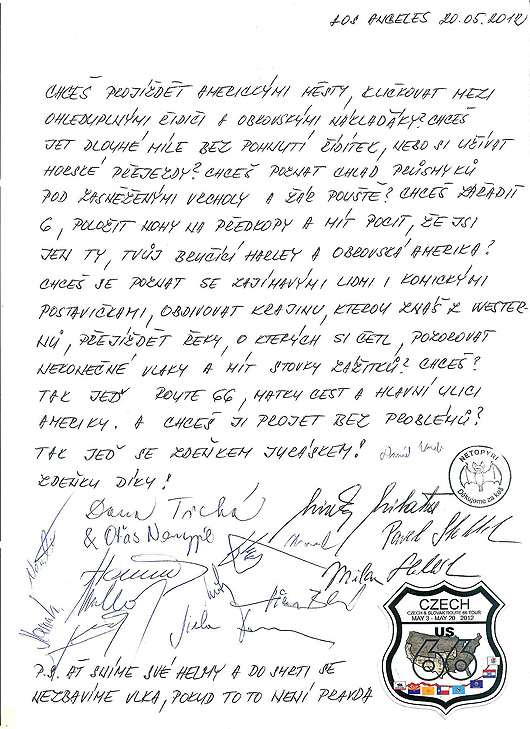 LOS ANGELES 20.05.2012
CHCEŠ PROJÍŽDĚT AMERICKÝMI MĚSTY, KLIČKOVAT MEZI
OHLEDUPLNÝMI ŘIDIČI A OBROVSKÝMI NÁKLAĎÁKY? CHCEŠ
JET DLOUHÉ MÍLE BEZ POHNUTÍ ŘÍDÍTEK, NEBO SI UŽÍVAT
HORSKÉ PŘEJEZDY? CHCEŠ POZNAT CHLAD PRŮSMYKŮ
POD ZASNĚŽENÝMI VRCHOLY A ŽÁR POUŠTĚ? CHCEŠ ZAŘADIT
6, POLOŽIT NOHY NA PŘEDKOPY A MÍT POCIT, ŽE JSI
JEN TY, TVŮJ BRUČÍCÍ HARLEY A OBROVSKÁ AMERIKA?
CHCEŠ SE POZNAT SE ZAJÍMAVÝMI LIDMI I KOMICKÝMI
POSTAVIČKAMI, OBDIVOVAT KRAJINU, KTEROU ZNÁŠ Z WESTER
NŮ, PŘEJÍŽDĚT ŘEKY, O KTERÝCH SI ČETL, POZOROVAT
NEKONEČNÉ VLAKY A MÍT STOVKY ZÁŽITKŮ? CHCEŠ?
TAK JEĎ ROUTE 66, MATKU CEST A HLAVNÍ ULICI
AMERIKY. A CHCEŠ JI PROJET BEZ PROBLÉMŮ?
TAK JEĎ SE ZDEŇKEM JURÁSKEM!
ZDEŇKU DÍKY!
NETOPÝŘI
Děkujeme za keš
Dana Tichá
& Oťas
Pavel
Milan
CZECH
CZECH & SLOVAK ROUTE 66 TOUR
MAY 3 - MAY 20 2012
US
66
P.S. AŤ SNÍME SVÉ HELMY A DO SMRTI SE
NEZBAVÍME VLKA, POKUD TOTO NENÍ PRAVDA